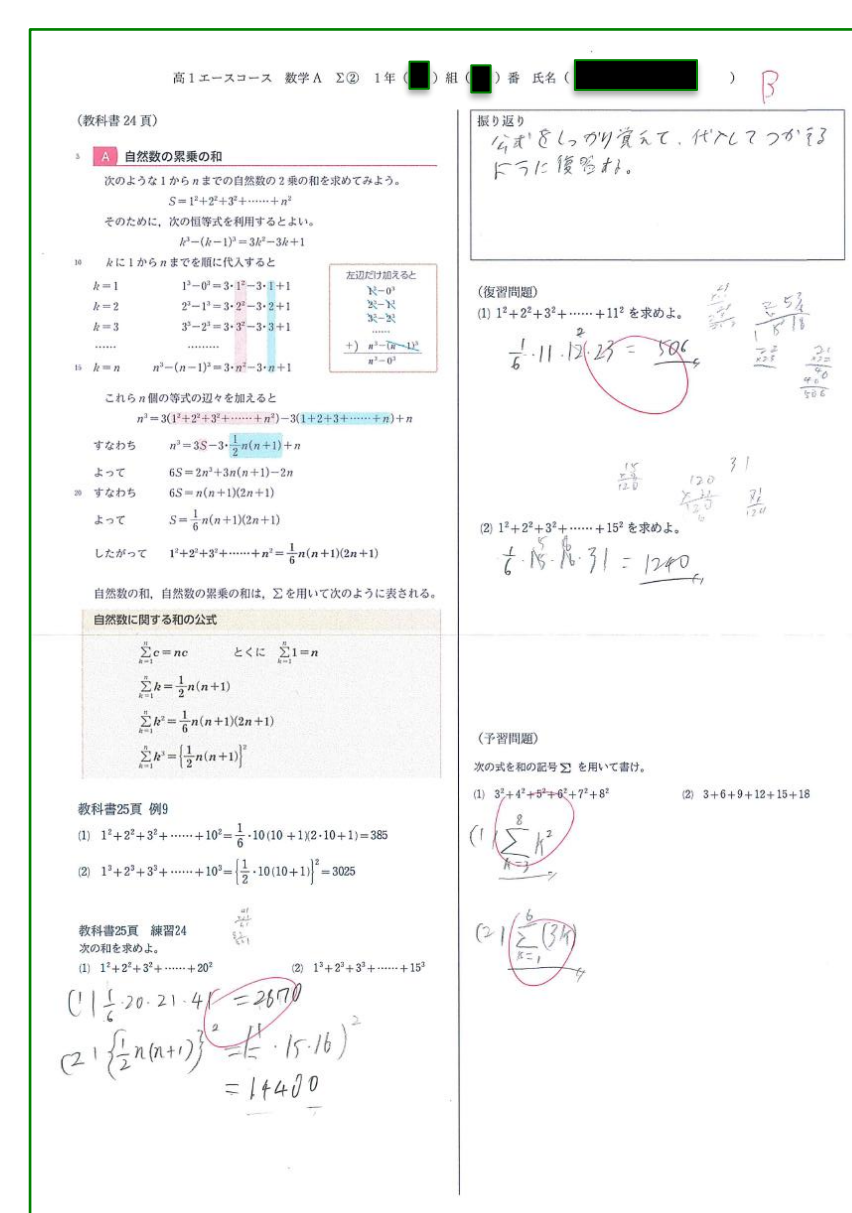 高1エースコース 数学A Σ② 1年( )組( )番 氏名( )
B
(教科書 24 頁)
5 A 自然数の累乗の和
次のような 1 から n までの自然数の 2 乗の和を求めてみよう。
S=1²+2²+3²+……+n²
そのために,次の恒等式を利用するとよい。
k³−(k−1)³=3k²−3k+1
10 k に 1 から n までを順に代入すると
k=1 1³−0³=3・1²−3・1+1
k=2 2³−1³=3・2²−3・2+1
k=3 3³−2³=3・3²−3・3+1
…… ………
15 k=n n³−(n−1)³=3・n²−3・n+1
左辺だけ加えると
1³−0³
2³−1³
3³−2³
……
+) n³−(n−1)³
n³−0³
これら n 個の等式の辺々を加えると
n³=3(1²+2²+3²+……+n²)−3(1+2+3+……+n)+n
すなわち n³=3S−3・1/2 n(n+1)+n
よって 6S=2n³+3n(n+1)−2n
20 すなわち 6S=n(n+1)(2n+1)
よって S=1/6 n(n+1)(2n+1)
したがって 1²+2²+3²+……+n²=1/6 n(n+1)(2n+1)
自然数の和,自然数の累乗の和は,Σ を用いて次のように表される。
自然数に関する和の公式
n Σ k=1 c=nc とくに n Σ k=1 1=n
n Σ k=1 k=1/2 n(n+1)
n Σ k=1 k²=1/6 n(n+1)(2n+1)
n Σ k=1 k³={1/2 n(n+1)}²
教科書25頁 例9
(1) 1²+2²+3²+……+10²=1/6・10(10+1)(2・10+1)=385
(2) 1³+2³+3³+……+10³={1/2・10(10+1)}²=3025
教科書25頁 練習24
次の和を求めよ。
(1) 1²+2²+3²+……+20² (2) 1³+2³+3³+……+15³
(1) 1/6・20・21・41 =2870
(2) {1/2 n(n+1)}² =(1/2・15・16)²
=14400
振り返り
公式をしっかり覚えて、代入してつかえる
ように復習する。
(復習問題)
(1) 1²+2²+3²+……+11² を求めよ。
1/6・11・12・23 = 506
(2) 1²+2²+3²+……+15² を求めよ。
1/6・15・16・31 = 1240
(予習問題)
次の式を和の記号 Σ を用いて書け。
(1) 3²+4²+5²+6²+7²+8² (2) 3+6+9+12+15+18
(1) 8 Σ k=3 k²
(2) 6 Σ k=1 (3k)